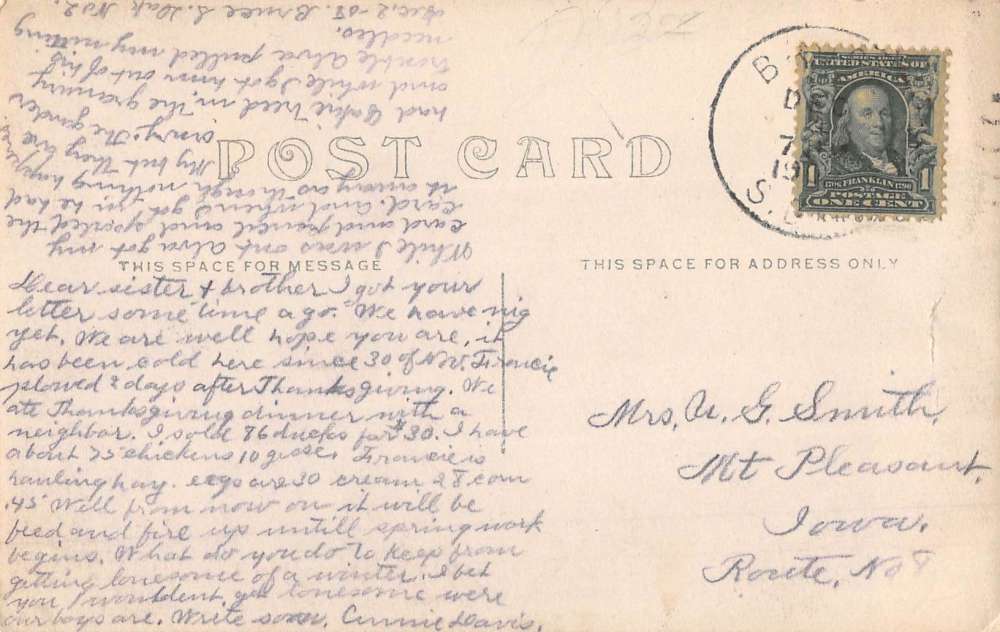 POST CARD
B
D
7
19
S. D
SERIES 1902
UNITED STATES OF
AMERICA
1706 FRANKLIN 1790
POSTAGE
1 ONE CENT 1
THIS SPACE FOR MESSAGE
THIS SPACE FOR ADDRESS ONLY
Dear sister & brother I got your
letter some time ago. We have nig
yet. We are well hope you are, it
has been cold here since 30 of Nov. Francie
plowed 2 days after Thanksgiving. We
ate Thanksgiving dinner with a
neighbor. I sold 76 ducks for $30. I have
about 75 chickens 10 geese. Francie is
hauling hay. eggs are 30 cream 28 corn
.45 Well from now on it will be
feed and fire up untill spring work
begins. What do you do to keep from
getting lonesome of a winter. I bet
you wouldent get lonesome were
our boys are. Write soon. Annie Davis.
While I was out Alva got my
card and pencil and spoiled the
card and when I got in he had
it away as though nothing happened
My but they are
ornry. The
had in the granary
and while I got him out of his
trouble Alva pulled my nitting
needles.
Dec. 2-08. Bruce S. Dak No 2.
Mrs. U. G. Smith,
Mt Pleasant,
Iowa.
Route, No 8